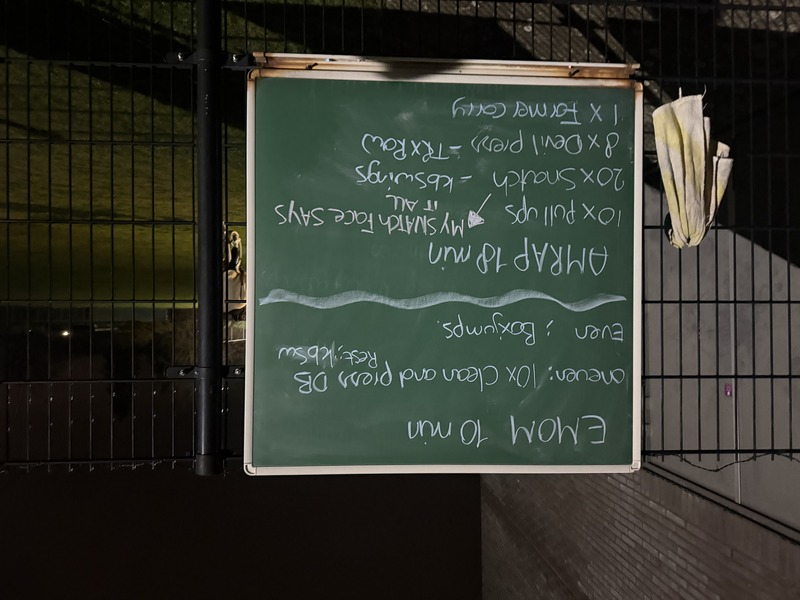 EMOM 10 min
oneven: 10x Clean and press DB
Rest: kbsw
Even : Boxjumps.
AMRAP 18 min
10x pull ups
MY SNATCH FACE SAYS
IT ALL
20x Snatch = kbswings
8x Devil press = TRX Row
1x Farmer carry